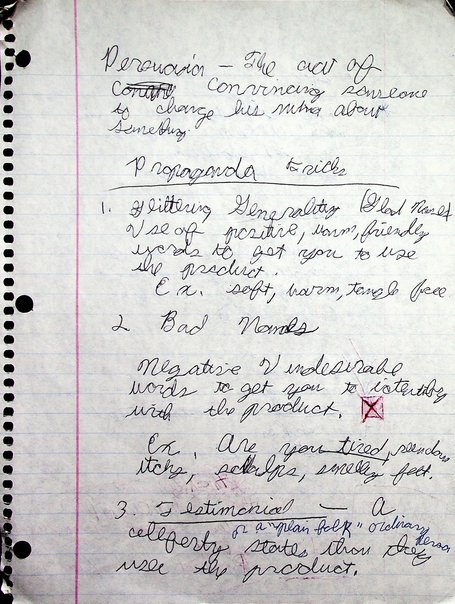 Persuasion - The act of
convincing someone
to change his mind about
something.
Propaganda tricks
1. Glittering Generality (Glad Names)
Use of positive, warm, friendly
words to get you to use
the product.
Ex. soft, warm, tangle free
2. Bad Names
Negative undesirable
words to get you to
with the product.
Ex. Are you tired,
itchy, smelly feet.
3. Testimonial - A
or a "plan folk" ordinary person
states that they
use the product.